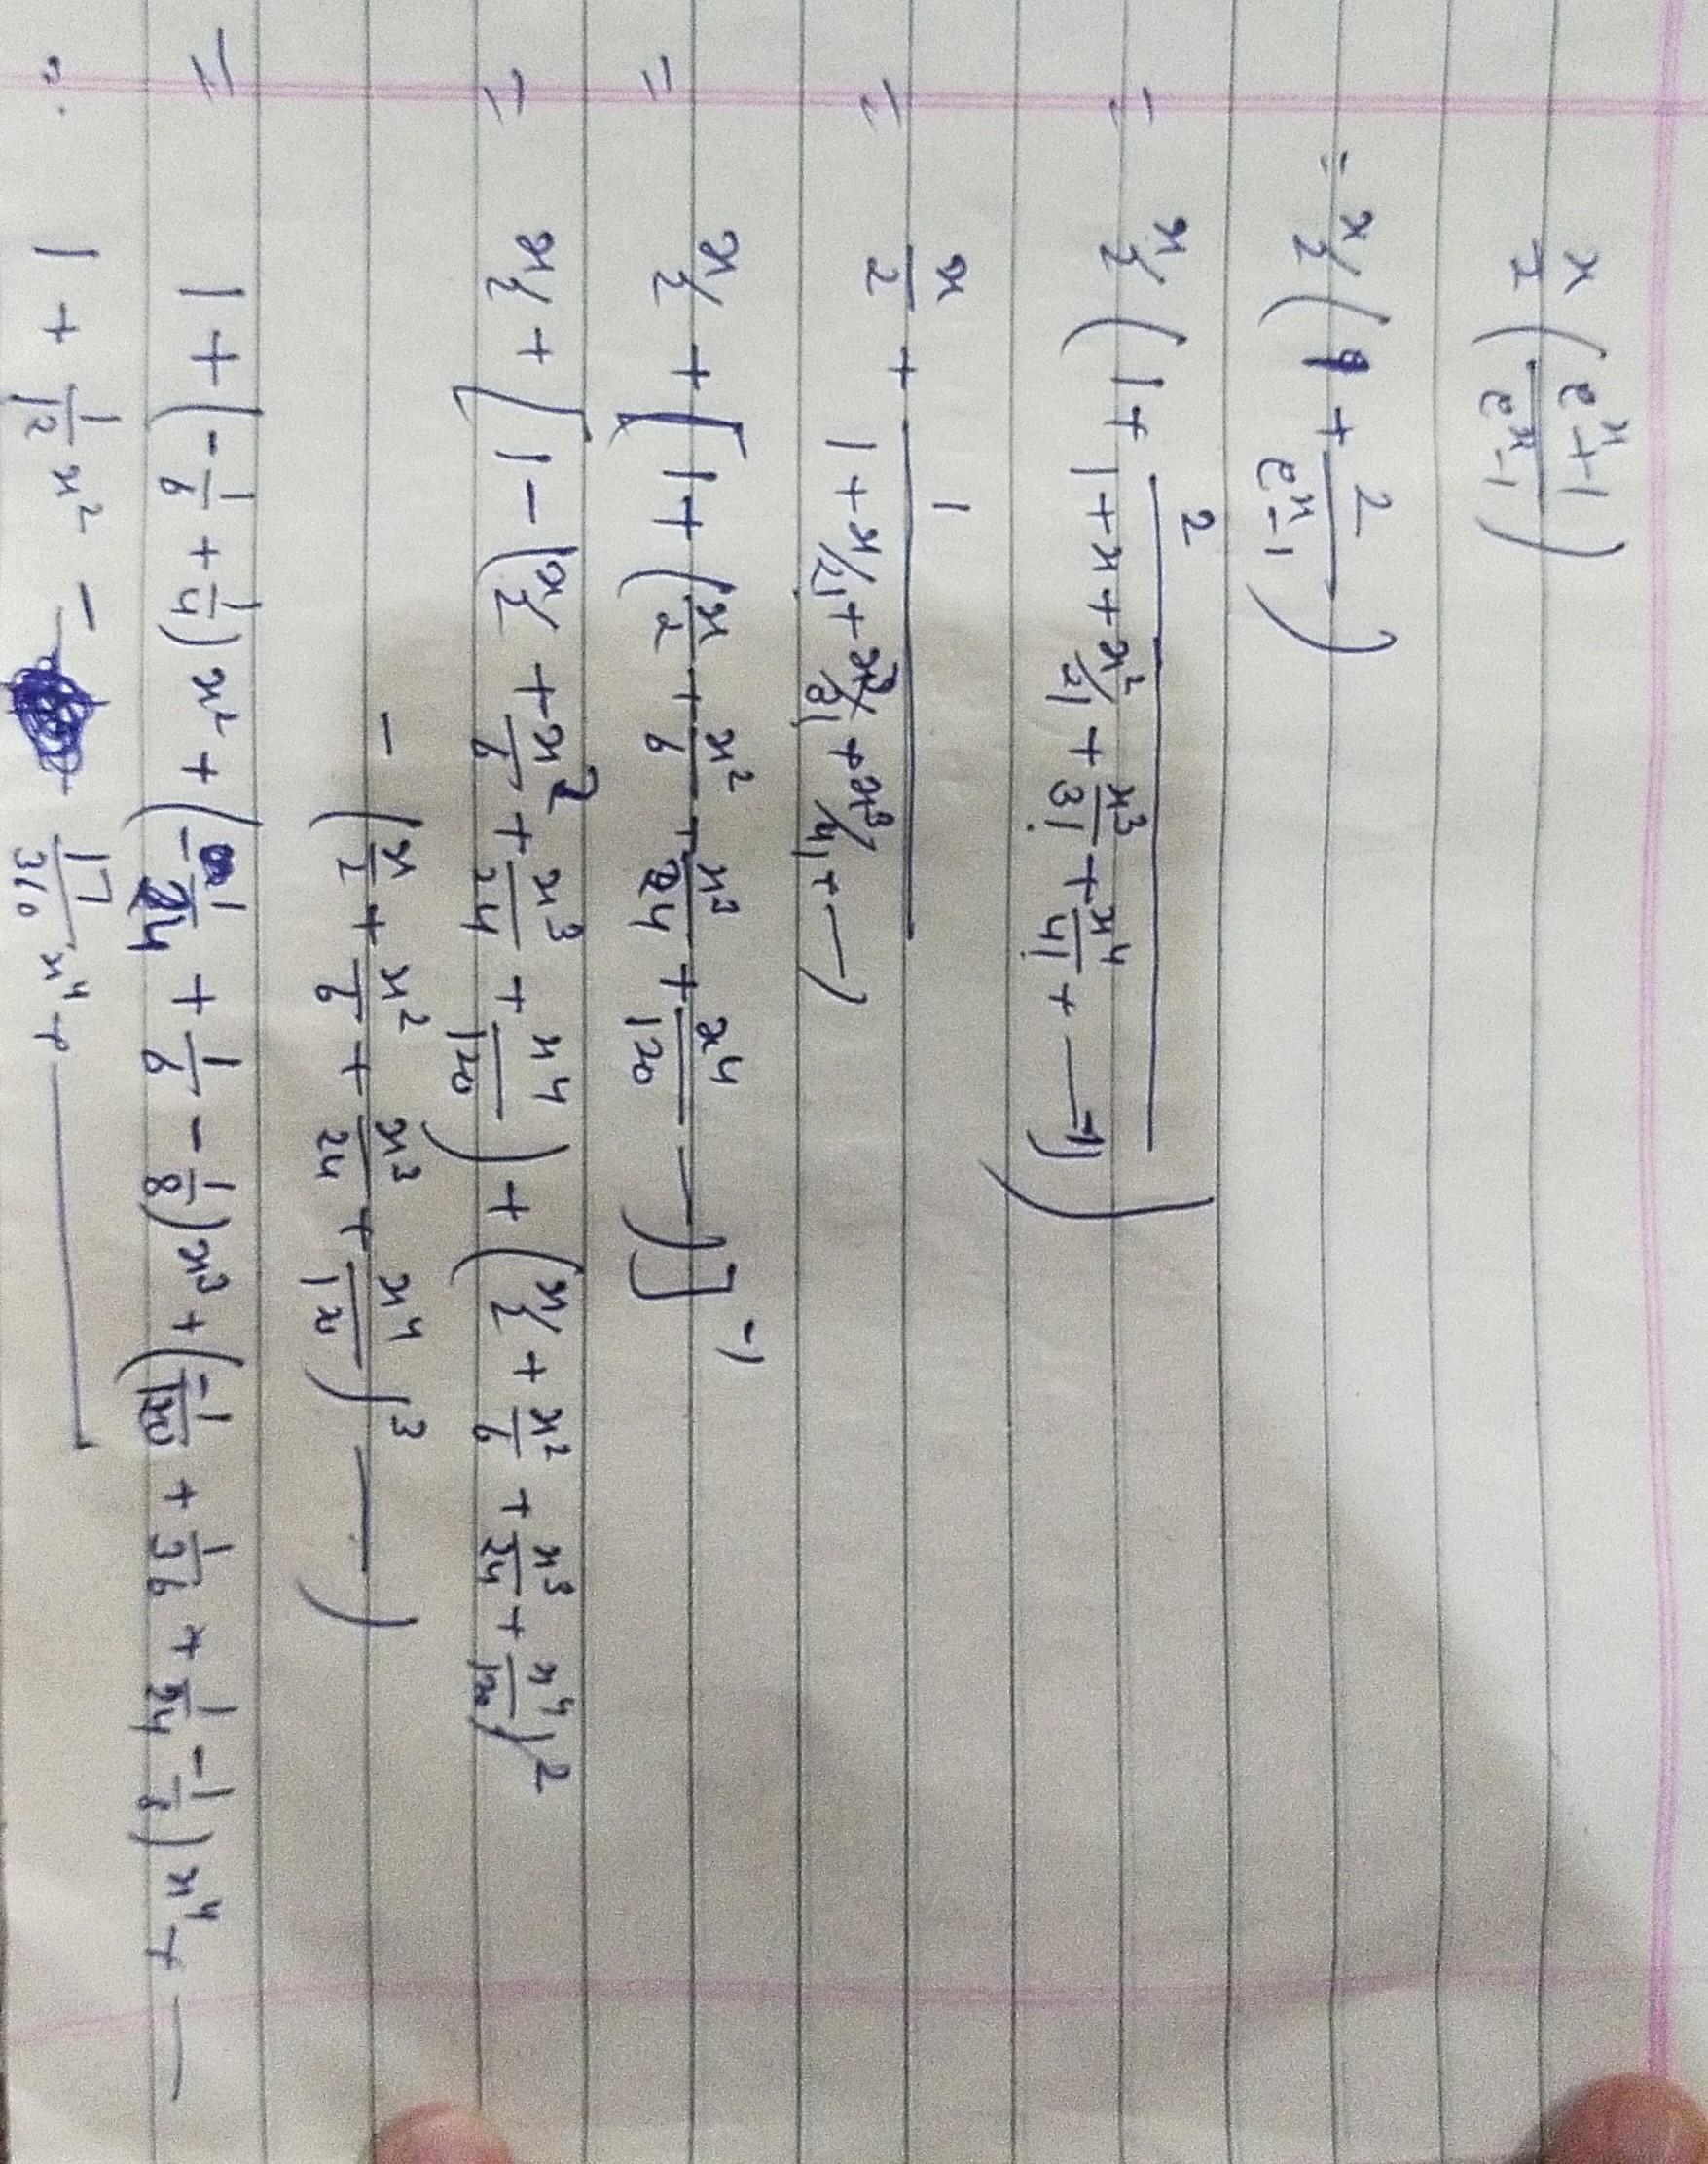 x/2 ( (e^x + 1)/(e^x - 1) )
= x/2 ( 1 + 2/(e^x - 1) )
= x/2 ( 1 + 2/(1 + x + x^2/2! + x^3/3! + x^4/4! + — -1) )
= x/2 + 1/(1 + x/2! + x^2/3! + x^3/4! + —)
= x/2 + [ 1 + ( x/2 + x^2/6 + x^3/24 + x^4/120 — ) ]^-1
= x/2 + ( 1 - ( x/2 + x^2/6 + x^3/24 + x^4/120 ) + ( x/2 + x^2/6 + x^3/24 + x^4/120 )^2
- ( x/2 + x^2/6 + x^3/24 + x^4/120 )^3 — )
= 1 + ( -1/6 + 1/4 ) x^2 + ( -1/24 + 1/6 - 1/8 ) x^3 + ( -1/120 + 1/36 + 1/24 - 1/8 ) x^4 + —
= 1 + 1/12 x^2 - 17/360 x^4 + —